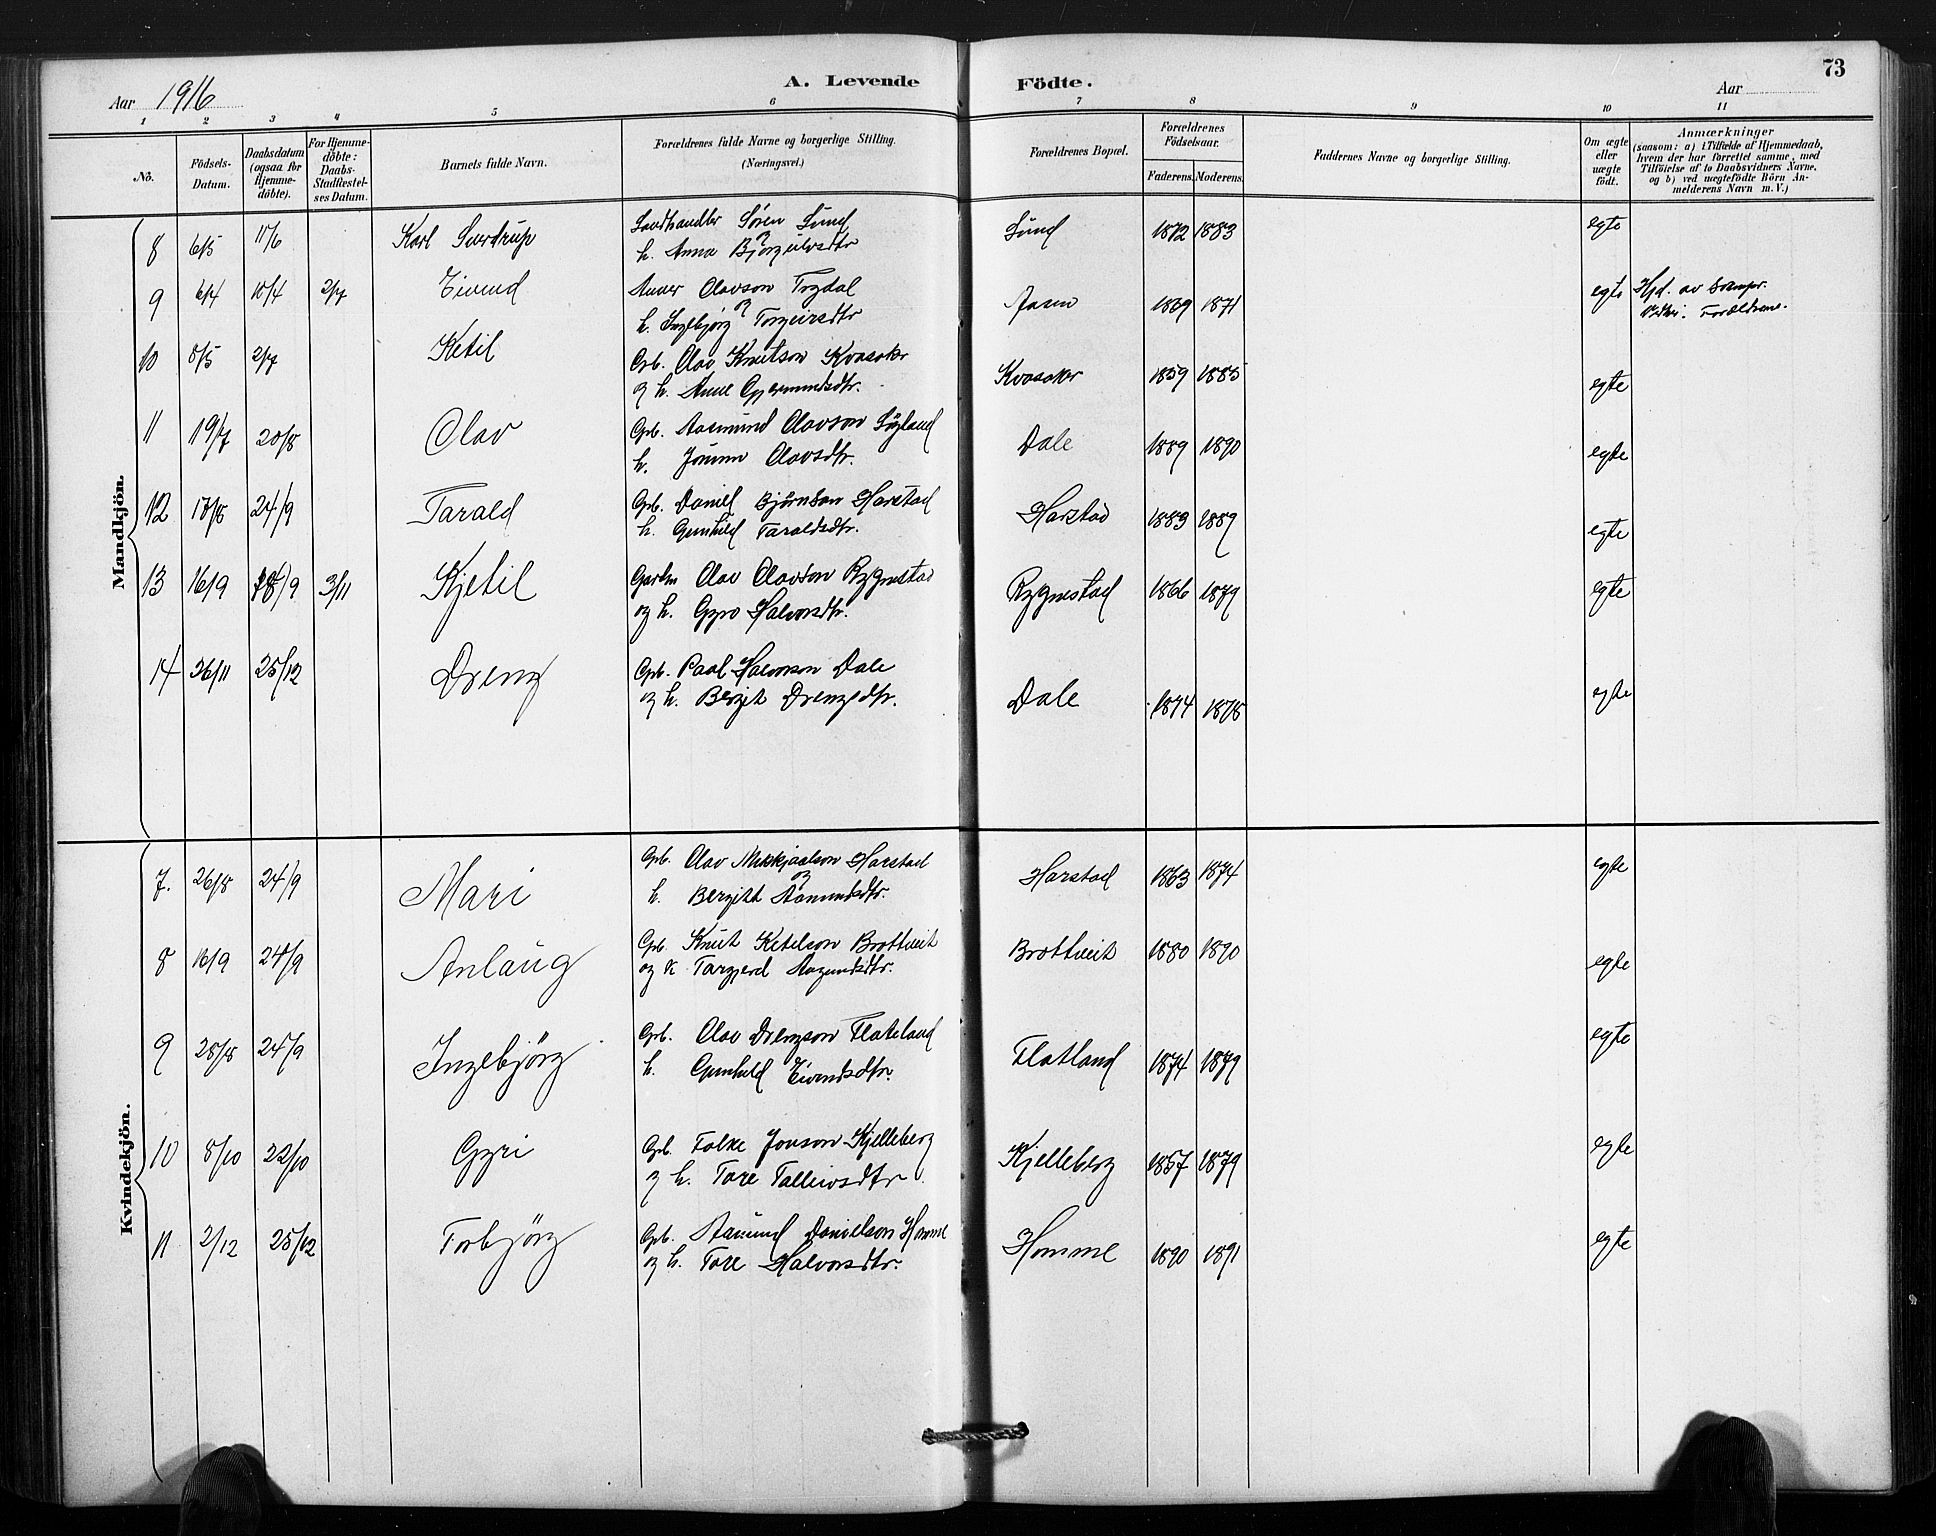 Aar 1916 A. Levende Födte. Aar 73
1 2 3 4 5 6 7 8 9 10 11
No.
Födsels-Datum.
Daabsdatum (ogsaa for Hjemmedöbte).
For Hjemmedöbte: Daabs-Stadfæstelses Datum.
Barnets fulde Navn.
Forældrenes fulde Navne og borgerlige Stilling. (Næringsvei.)
Forældrenes Bopæl.
Forældrenes Födselsaar.
Faderens. Moderens.
Faddernes Navne og borgerlige Stilling.
Om ægte eller uægte födt.
Anmærkninger
(saasom: a) i Tilfælde af Hjemmedaab,
hvem der har forrettet samme, med
Tilföielse af to Daabsvidners Navne,
og b) ved uægtefödte Börn An-
melderens Navn m. V.)
Mandkjön.
8 6/5 11/6 Karl Sverdrup Landhandler Sören Lund Lund 1872 1883 egte
og h. Anna Bjørgulvsdtr
9 6/4 10/4 2/7 Eivind Anver Olavson Trydal Aasen 1869 1871 egte Hjd. av
og h. Ingebjörg Torgeirsdtr Forældrene.
10 8/5 2/7 Ketil Grb. Olav Knutson Kvasaker Kvasaker 1859 1885 egte
og h. Anne Gjermundsdtr.
11 19/7 20/8 Olav Grb. Aasmund Olavson Löyland Dale 1889 1890 egte
h. Jorunn Olavsdtr.
12 17/8 24/9 Tarald Grb. Daniel Björnson Harstad Harstad 1883 1889 egte
h. Gunhild Taraldsdtr.
13 16/9 /9 3/11 Kjetil Olav Olavson Rygnestad Rygnestad 1866 1879 egte
og h. Gyro Halvorsdtr.
14 26/11 25/12 Dreng Grb. Paal Halvorson Dale Dale 1874 1878 egte
og h. Bergit Drengsdtr.
Kvindekjön.
7. 26/8 24/9 Mari Grb. Olav Mikkjaalson Harstad Harstad 1863 1874 egte
og h. Bergitt Aasmundsdtr.
8 16/9 24/9 Anlaug Grb. Knut Ketelson Brottveit Brottveit 1880 1890 egte
og h. Targjerd Aasmundsdtr.
9 28/8 24/9 Ingebjörg Grb. Olav Drengson Flateland Flatland 1874 1879 egte
h. Gunhild Eivindsdtr.
10 8/10 22/10 Gyri Grb. Folke Jonson Kjelleberg Kjelleberg 1857 1879 egte
og h. Tore Tallevsdtr
11 2/12 25/12 Torbjörg Grb. Aasmund Danielson Homme Homme 1890 1891 egte
og h. Tore Halvorsdtr.